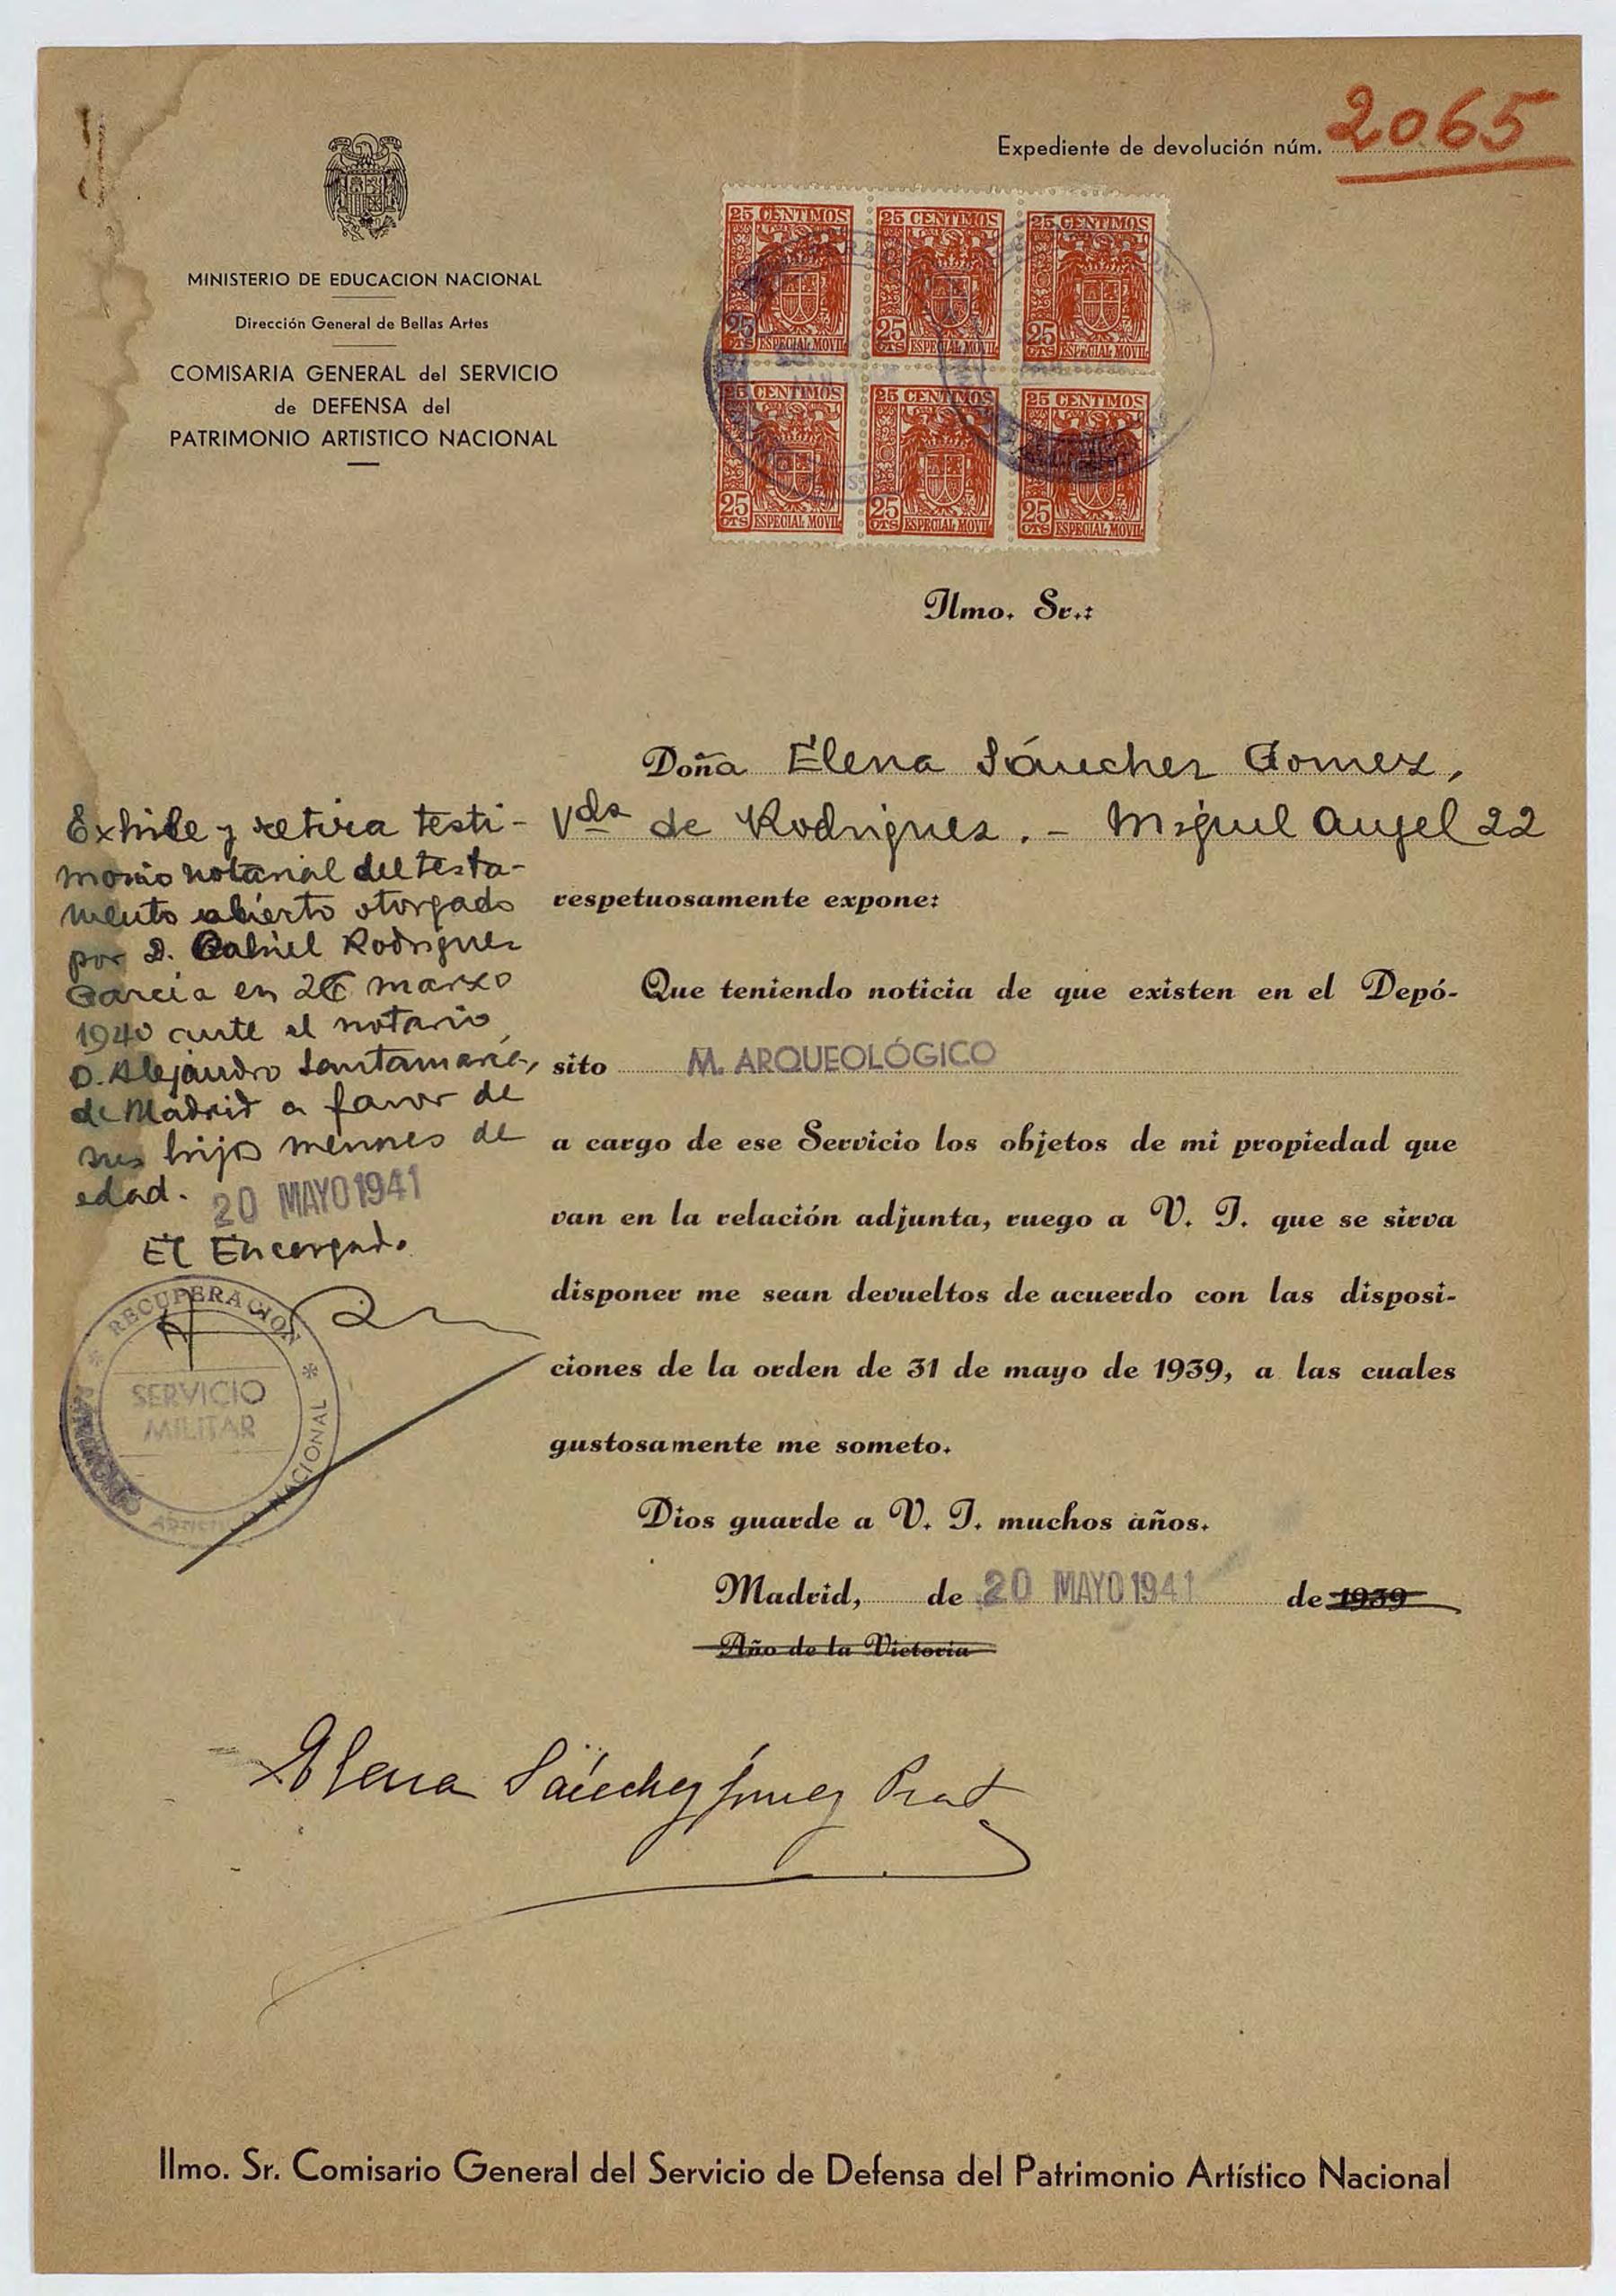 Expediente de devolución núm. 2065
MINISTERIO DE EDUCACION NACIONAL
Dirección General de Bellas Artes
COMISARIA GENERAL del SERVICIO
de DEFENSA del
PATRIMONIO ARTISTICO NACIONAL
25 CENTIMOS 25 CENTIMOS 25 CENTIMOS
25 CTS ESPECIAL MOVIL 25 CTS ESPECIAL MOVIL 25 CTS ESPECIAL MOVIL
25 CENTIMOS 25 CENTIMOS 25 CENTIMOS
25 CTS ESPECIAL MOVIL 25 CTS ESPECIAL MOVIL 25 CTS ESPECIAL MOVIL
Ilmo. Sr.:
Doña Elena Sánchez Gomez,
Vda de Rodriguez. - Miguel Angel 22
respetuosamente expone:
Que teniendo noticia de que existen en el Depó-
sito M. ARQUEOLÓGICO
a cargo de ese Servicio los objetos de mi propiedad que
van en la relación adjunta, ruego a V. I. que se sirva
disponer me sean devueltos de acuerdo con las disposi-
ciones de la orden de 31 de mayo de 1939, a las cuales
gustosamente me someto.
Dios guarde a V. I. muchos años.
Madrid, de 20 MAYO 1941 de 1939
Año de la Victoria
Exhibe y retira testi-
monio notarial del testa-
mento abierto otorgado
por D. Gabriel Rodriguez
Garcia en marzo
1940 ante el notario
D. Alejandro Santamaría,
de Madrid a favor de
sus hijos menores de
edad. 20 MAYO 1941
El Encargado
RECUPERACION
SERVICIO
MILITAR
NACIONAL
Elena Sánchez Gómez Prat
Ilmo. Sr. Comisario General del Servicio de Defensa del Patrimonio Artístico Nacional